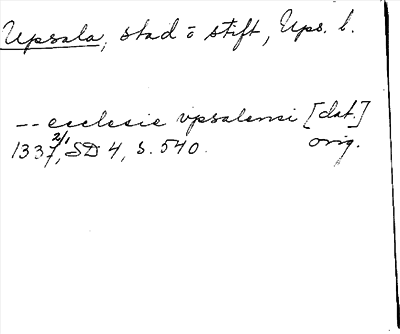 Upsala, stad o stift, Ups. l.
-- ecclesie vpsalensi [dat.]
1337 2/1, SD 4, s. 540. orig.